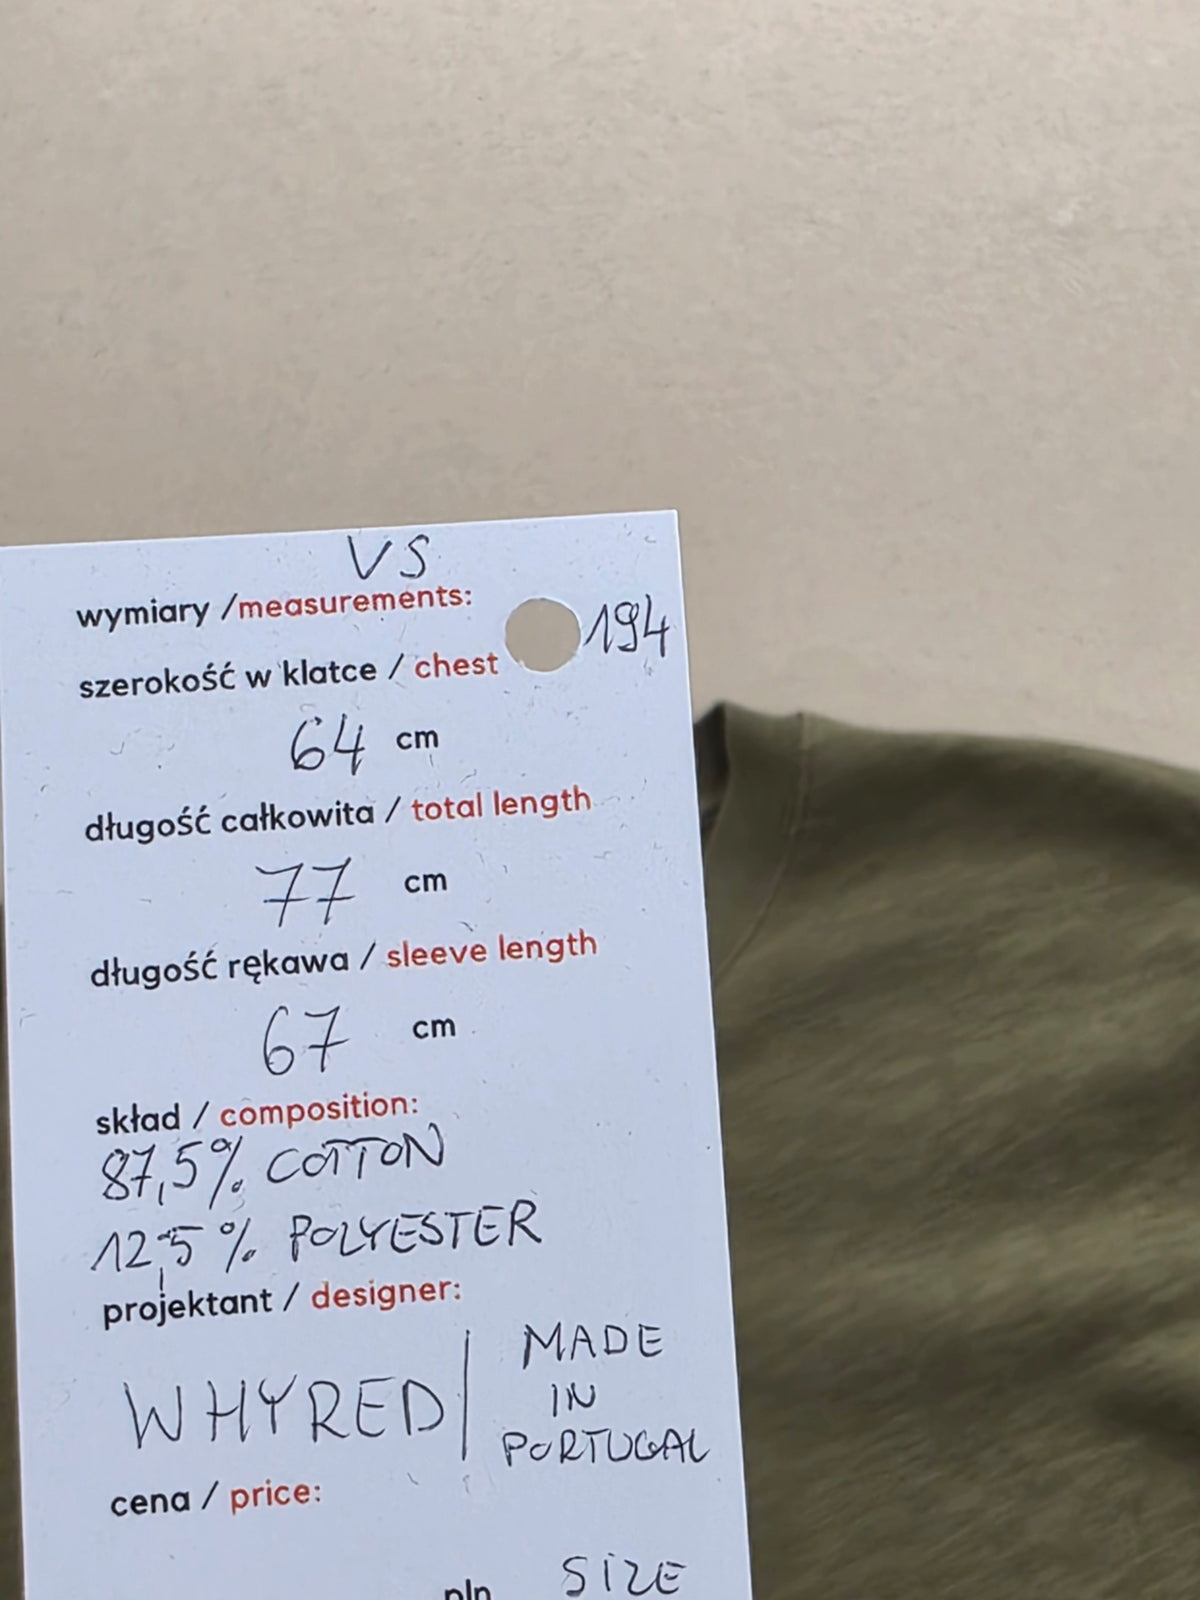 VS
wymiary /measurements:
194
szerokość w klatce / chest
64 cm
długość całkowita / total length
77 cm
długość rękawa / sleeve length
67 cm
skład / composition:
87,5% COTTON
12,5% POLYESTER
projektant / designer:
WHYRED | MADE
IN
PORTUGAL
cena / price:
pln SIZE